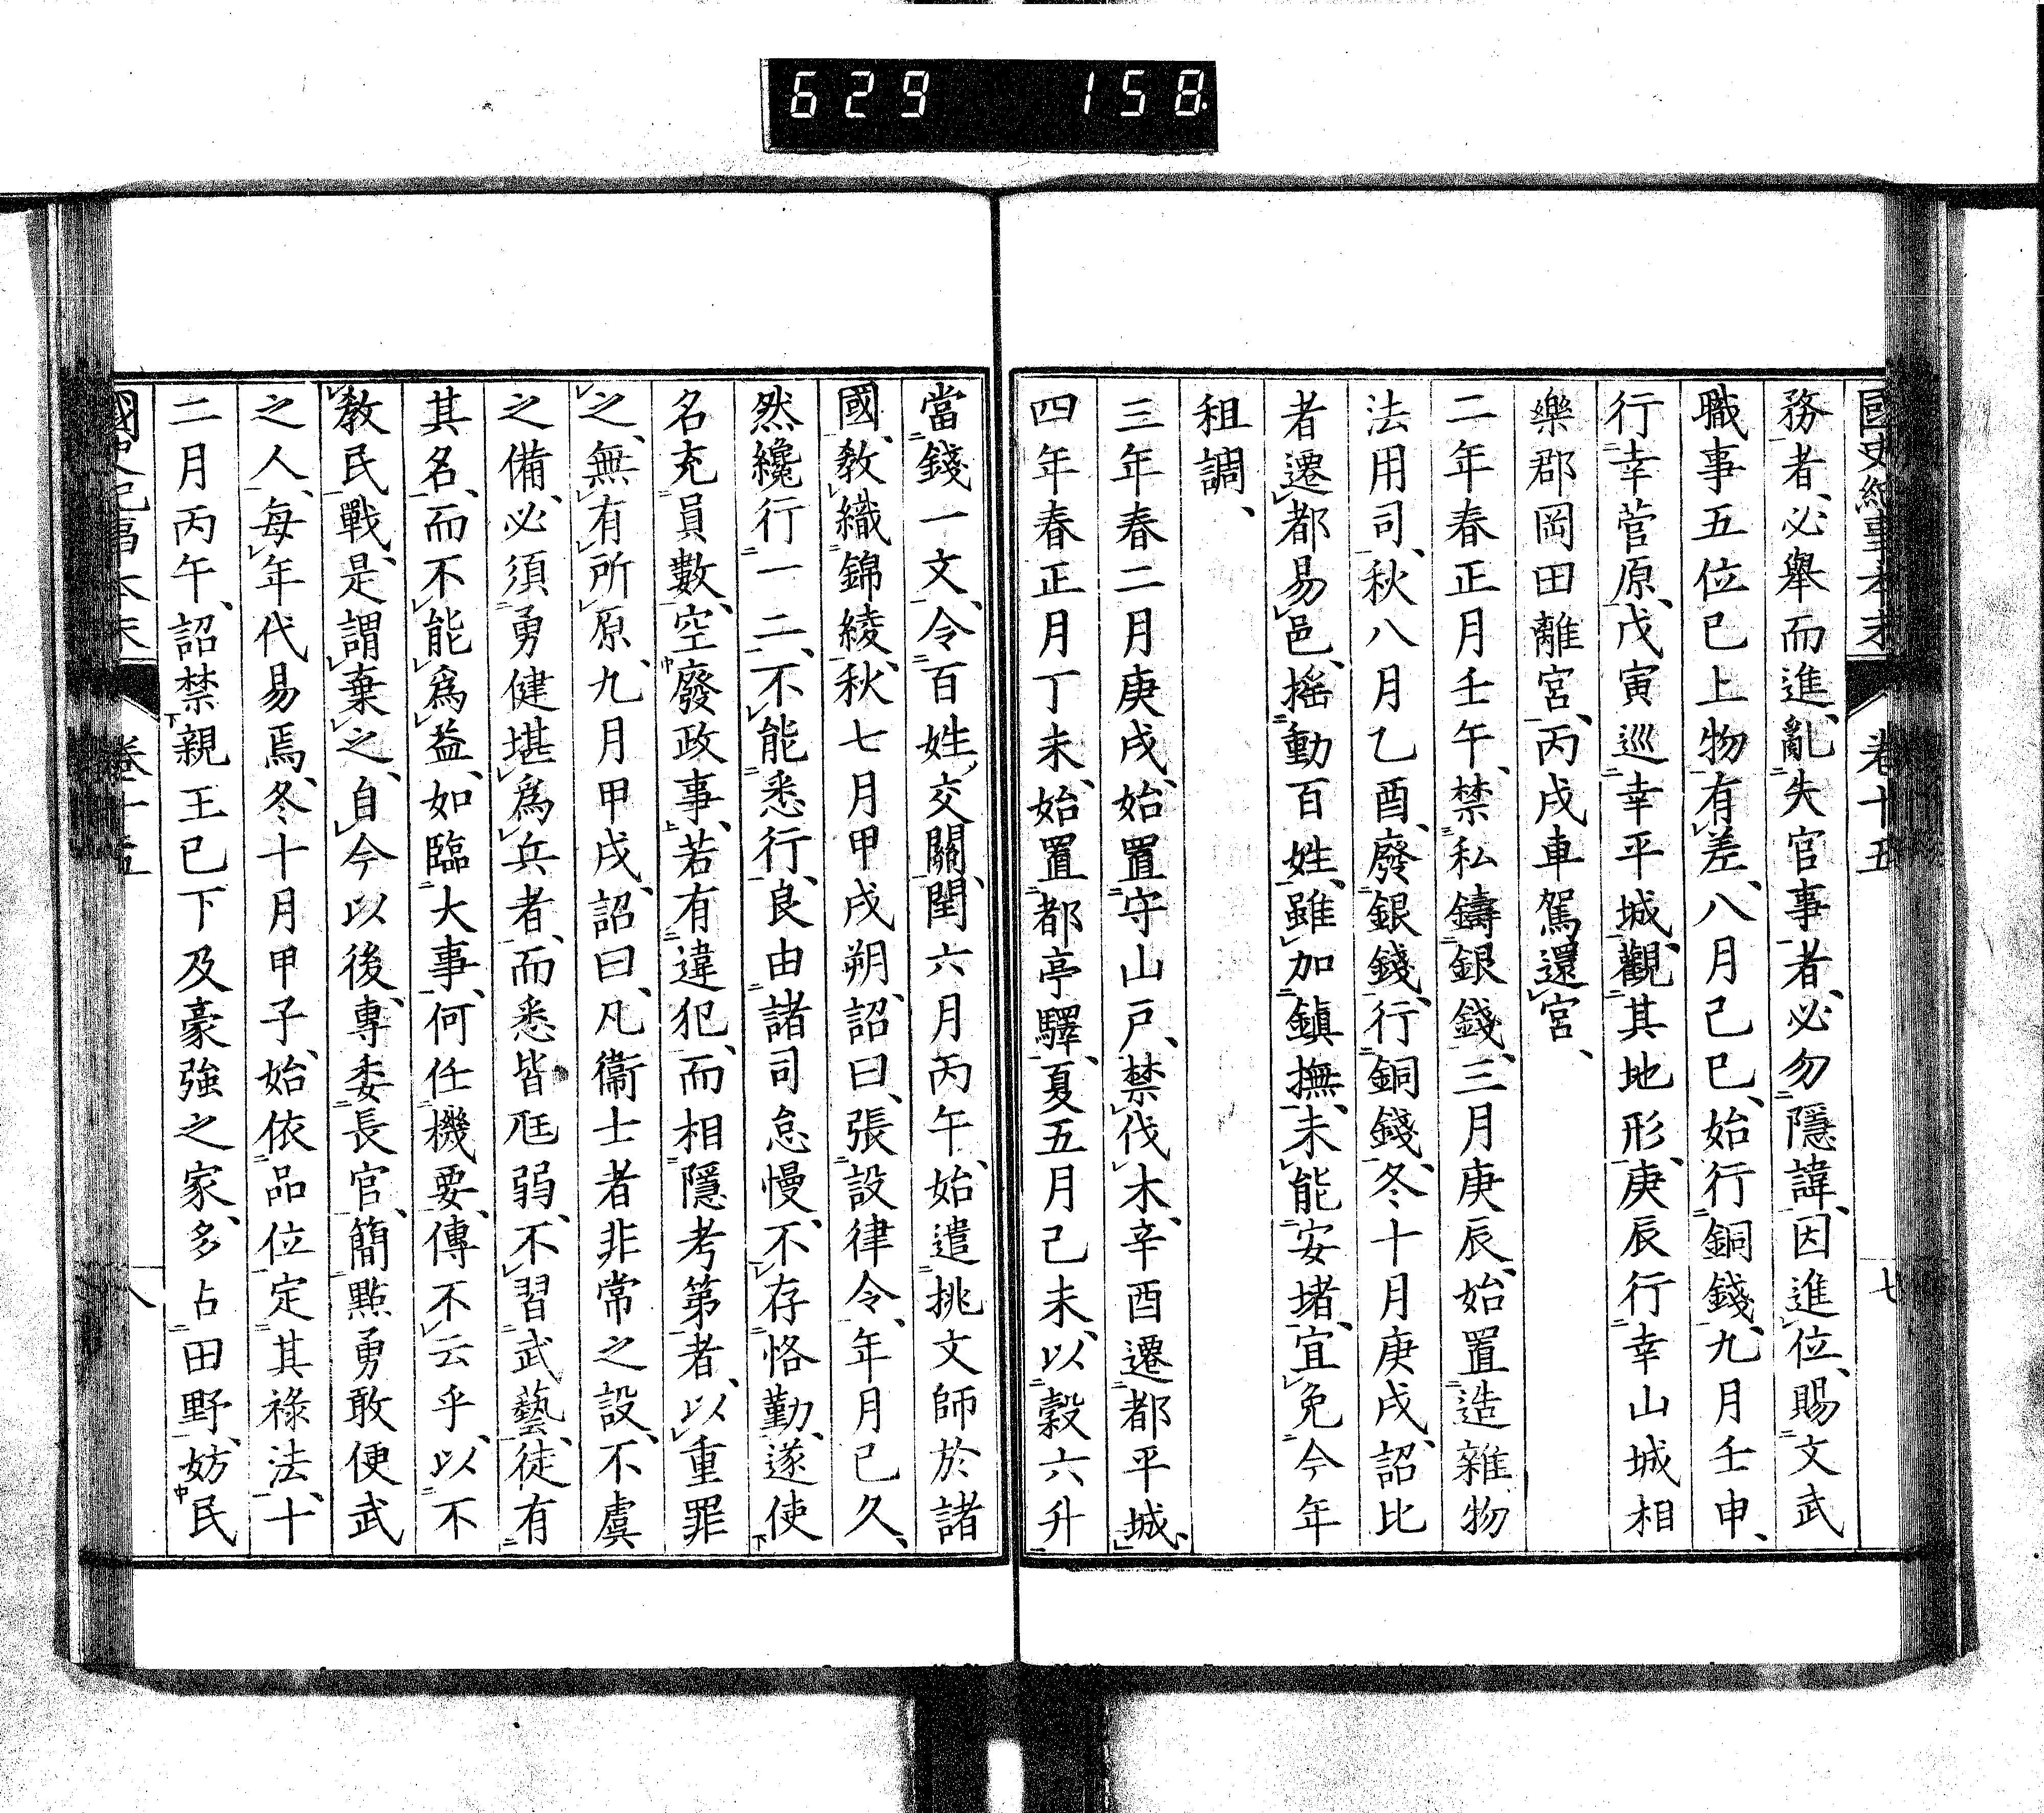 629 158
國史紀事本末 卷十五 七
務者、必舉而進、亂失官事者、必勿隱諱、因進位、賜文武
職事五位已上物有差、八月己巳、始行銅錢、九月壬申、
行幸菅原、戊寅巡幸平城、觀其地形、庚辰行幸山城相
樂郡岡田離宮、丙戌車駕還宮、
二年春正月壬午、禁私鑄銀錢、三月庚辰、始置造雜物
法用司、秋八月乙酉、廢銀錢、行銅錢、冬十月庚戌、詔比
者遷都易邑、搖動百姓、雖加鎮撫、未能安堵、宜免今年
租調、
三年春二月庚戌、始置守山戶、禁伐木、辛酉遷都平城、
四年春正月丁未、始置都亭驛、夏五月己未、以穀六升
當錢一文、令百姓交關、閏六月丙午、始遣挑文師於諸
國、教織錦綾、秋七月甲戌朔、詔曰、張設律令、年月已久、
然纔行一二、不能悉行、良由諸司怠慢、不存恪勤、遂使
名充員數、空廢政事、若有違犯、而相隱考第者、以重罪
之、無有所原、九月甲戌、詔曰、凡衞士者非常之設、不虞
之備、必須勇健堪爲兵者、而悉皆尫弱、不習武藝、徒有
其名、而不能爲益、如臨大事、何任機要、傳不云乎、以不
教民戰、是謂棄之、自今以後、專委長官、簡點勇敢便武
之人、每年代易焉、冬十月甲子、始依品位定其祿法、十
二月丙午、詔禁親王已下及豪強之家、多占田野、妨民
國史紀事本末 卷十五 八